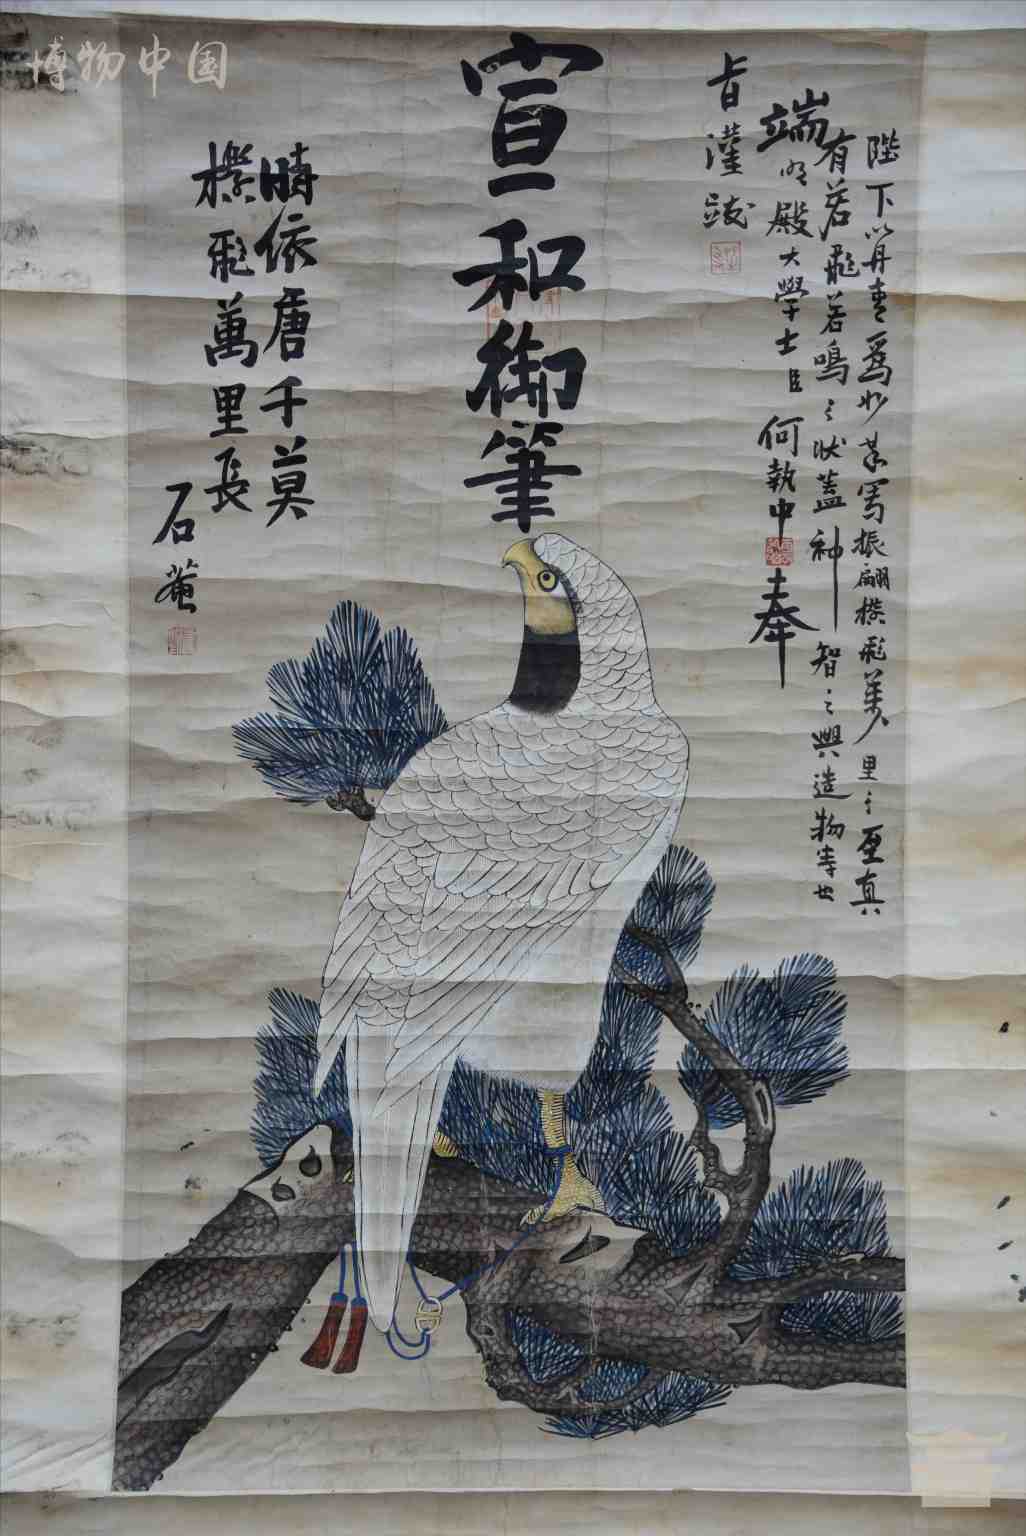 博物中国
陛下以丹青爲 寫振翮 飛萬里之至真
有若飛若鳴之狀蓋神智之與造物等也
端明殿大學士臣何執中奉
旨謹跋
宣和御筆
時依唐千莫
飛萬里長
石菴